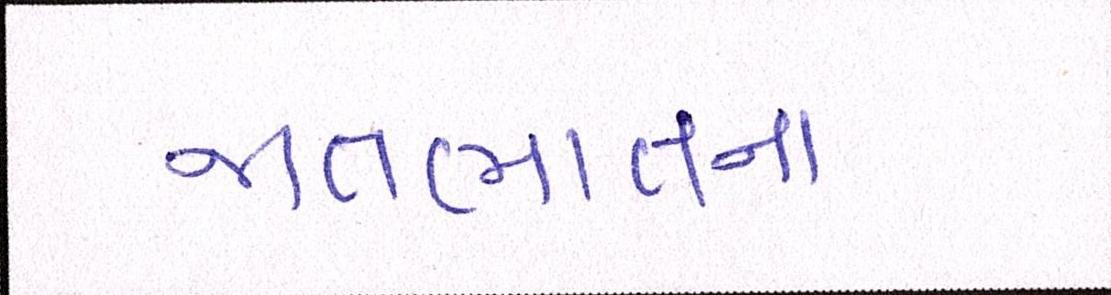 જાતભાતના